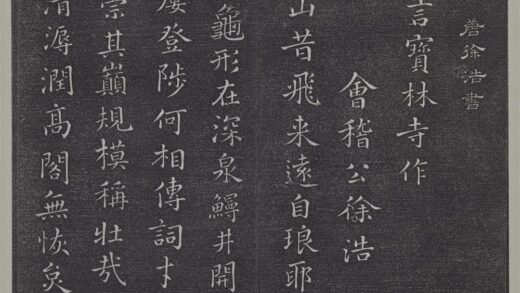 善徐浩書
言寶林寺作
會稽公徐浩
山昔飛来遠自琅耶
龜形在深泉鰻井開
屢登陟何相傳詞才
崇其巔規模稱壯哉
清溽潤髙閣無恢炱